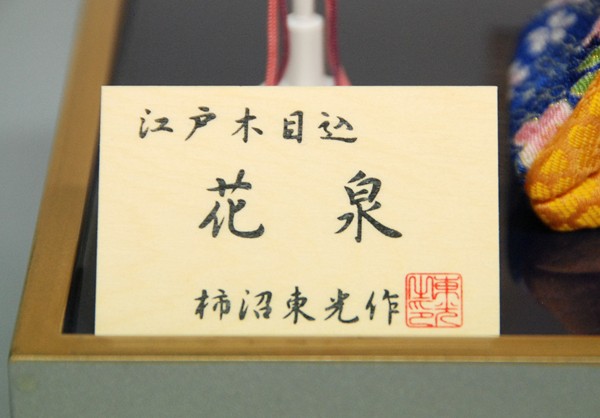 江戸木目込
花泉
柿沼東光作
東光之印